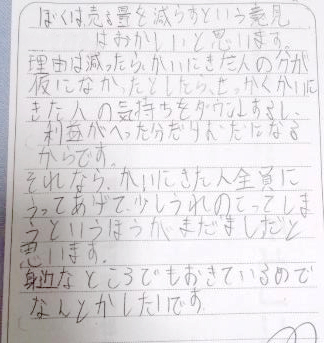 ぼくは売る量を減らすという意見
はおかしいと思います。
理由は減ったら、かいにきた人の分が
仮になかったとしたら、せっかくかいに
きた人の気持ちをダウンしするし、
利益がへった分だけおだになる
からです。
それなら、かいにきた人全員に
うってあげて、少しうれのこってしま
うというほうがまだましだと
思います。
身近なところでもおきているので
なんとかしたいです